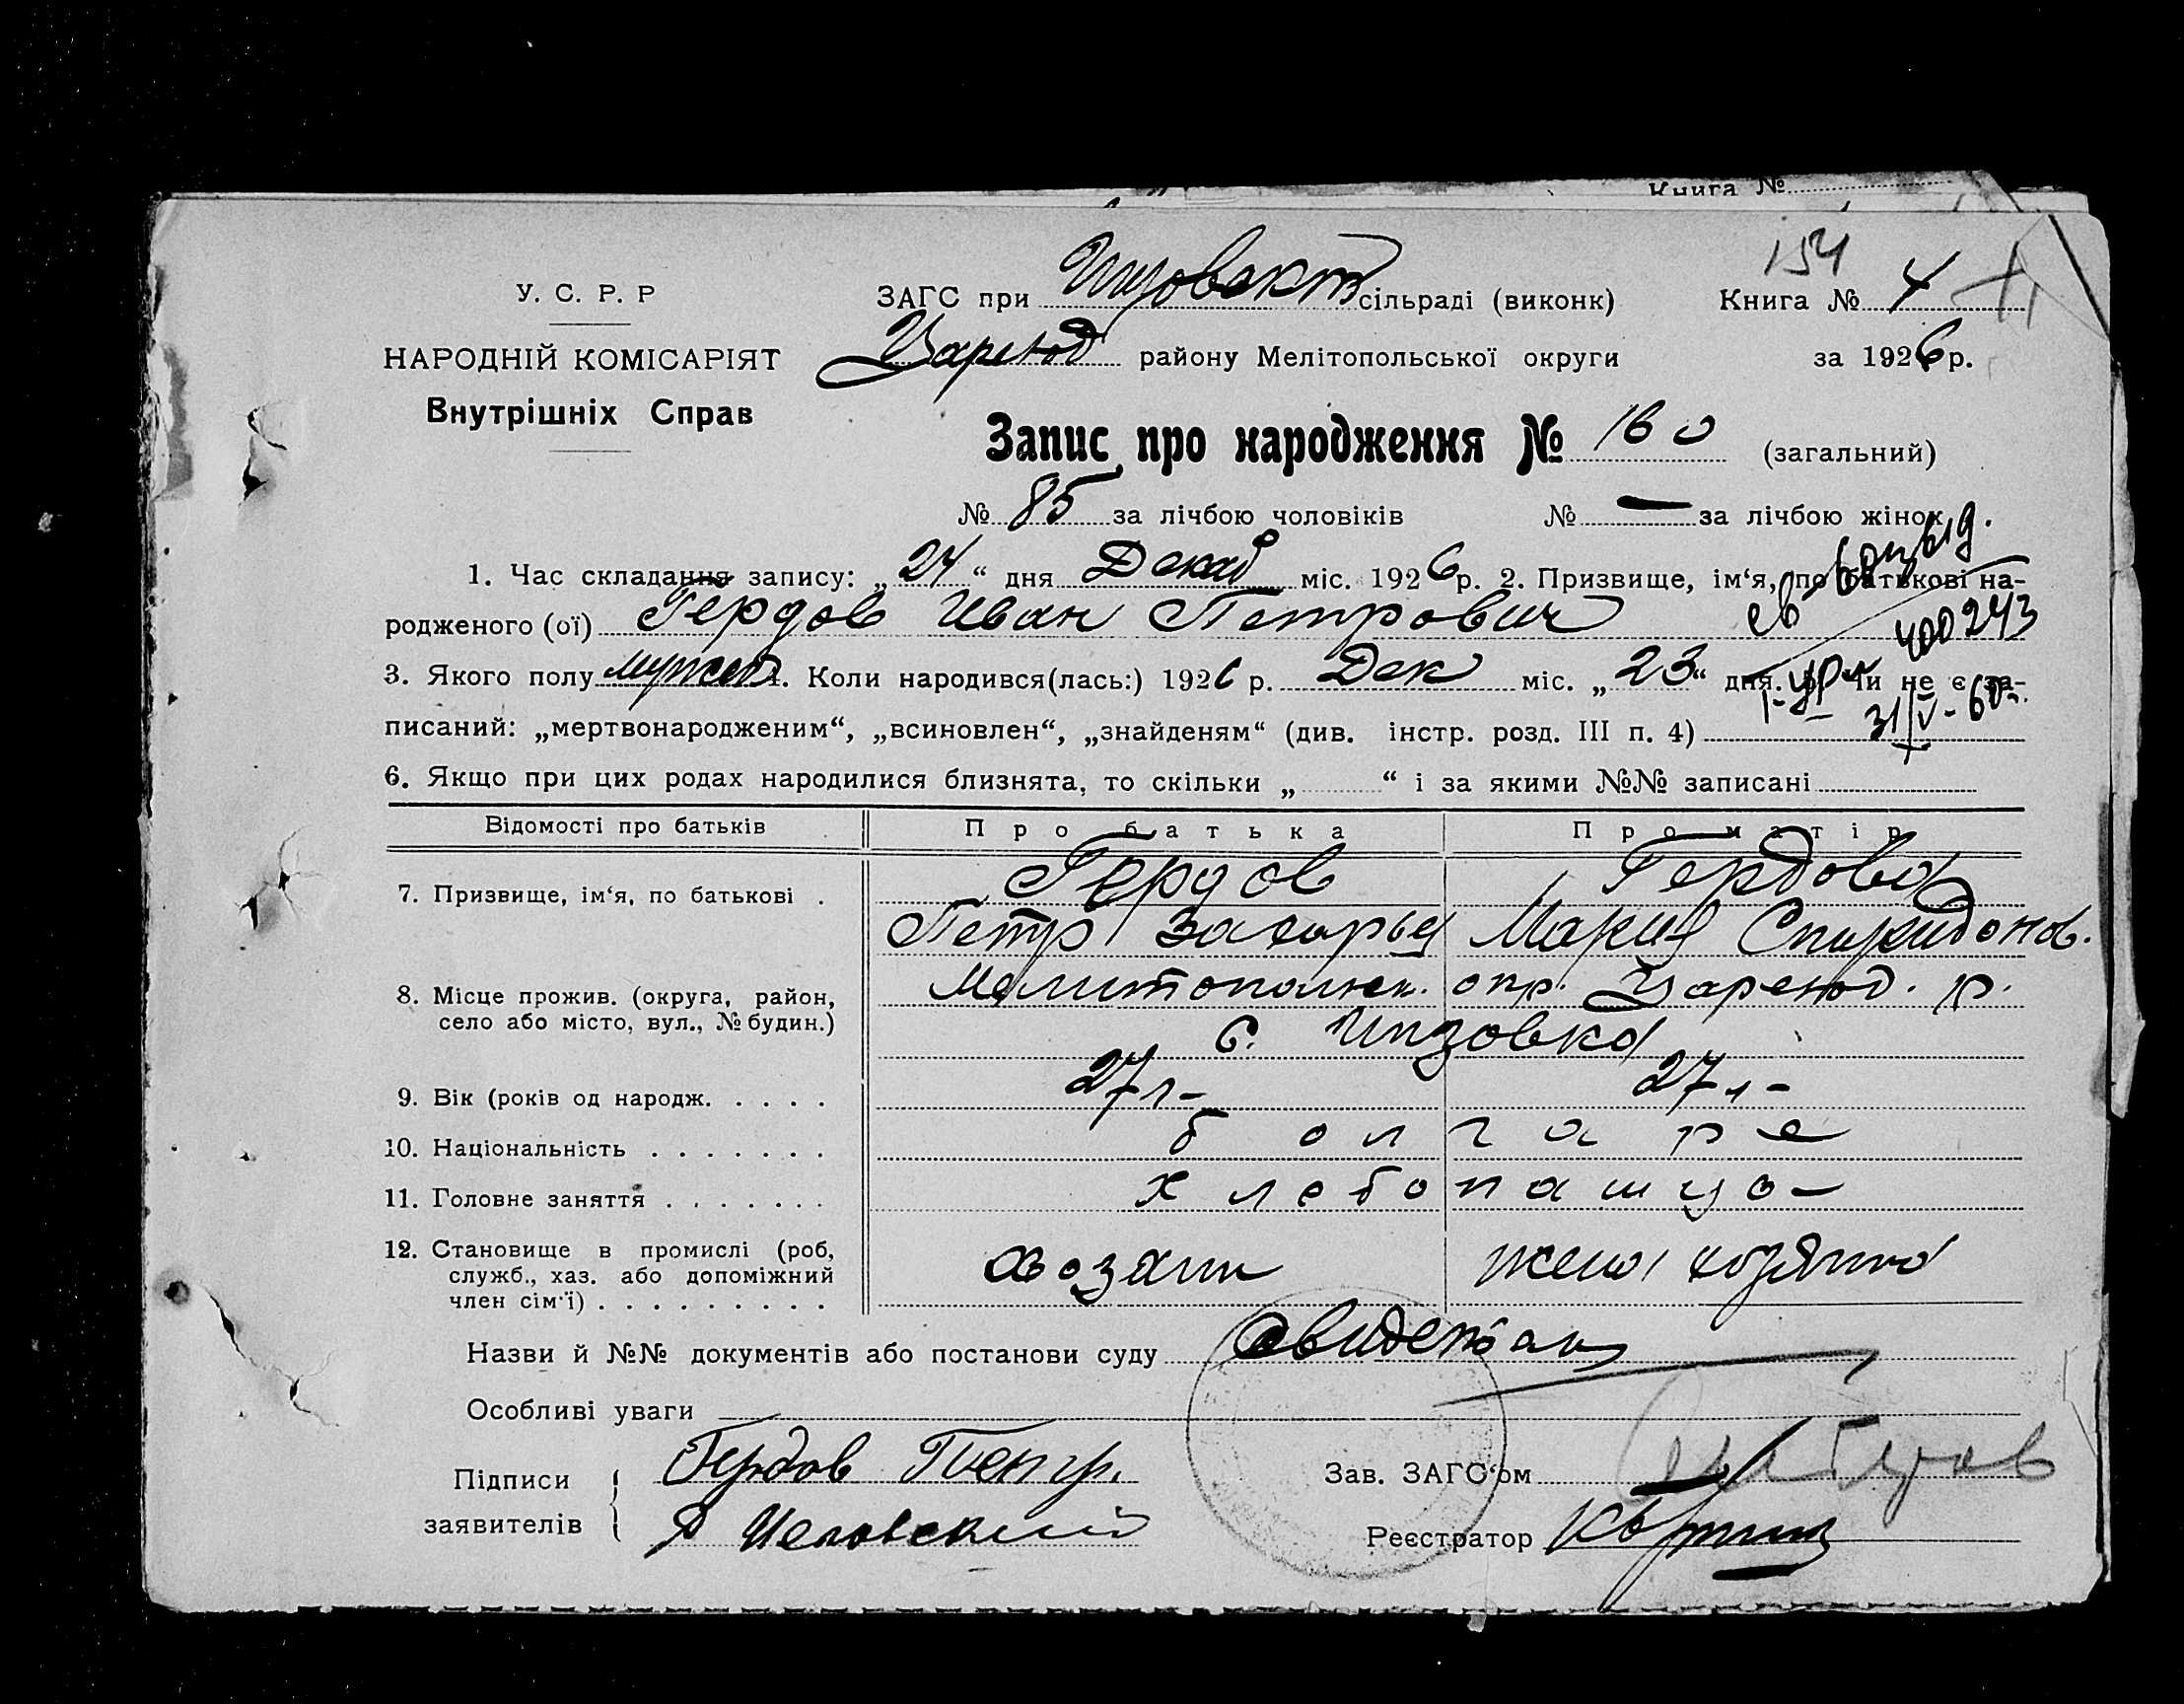 Книга №
154
У. С. Р. Р
НАРОДНІЙ КОМІСАРІЯТ
Внутрішніх Справ
ЗАГС при сільраді (виконк) Книга № 4
Цареюд району Мелітопольської округи за 1926 р.
Запис про народження № 160 (загальний)
№ 85 за лічбою чоловіків № — за лічбою жінок
1. Час складання запису: „ 24 “ дня Декаб міс. 1926 р. 2. Призвище, ім‘я, по батькові на-
родженого (ої) Гердов Иван Петрович
400243
3. Якого полу мужск 4. Коли народився(лась:) 1926 р. Дек міс. „ 23 “ дня. 5. Чи не є за-
31/V-60г.
писаний: „мертвонародженим“, „всиновлен“, „знайденям“ (див. інстр. розд. III п. 4)
6. Якщо при цих родах народилися близнята, то скільки „ “ і за якими №№ записані
Відомості про батьків Про батька Про матір
7. Призвище, ім‘я, по батькові . Гердов Гердова
Петр Захарьев Мария Спиридонов.
8. Місце прожив. (округа, район, село або місто, вул., № будин.) Мелитопольск. окр. Цареюд. р.
с. Инзовка
9. Вік (років од народж. . . . . 27 л- 27 л-
10. Національність . . . . . . . болгаре
11. Головне заняття . . . . . . . хлебопашцо-
12. Становище в промислі (роб, служб., хаз. або допоміжний член сім‘ї) . . . . . . . . . хозяин жена хозяина
Назви й №№ документів або постанови суду
Особливі уваги
Підписи заявителів Гердов Петр. Зав. ЗАГС‘ом
Реєстратор